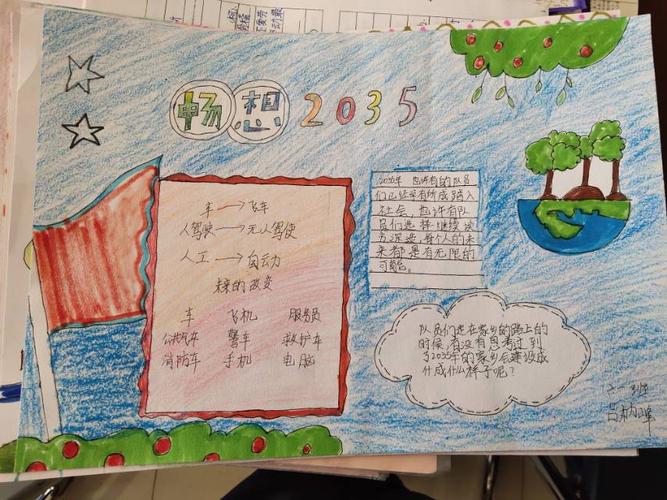 畅想2035
车→飞车
人驾驶→无人驾驶
人工→自动
未来的改变
车 飞机 服务员
公共汽车 警车 救护车
消防车 手机 电脑
2035年 也许有的队员
们已经学有所成踏入
社会,也许有队
员们选择继续读
每个人的未
来都是有无限的
可能。
队员们走在家乡的路上的
时候,有没有思考过到
了2035年的家乡后建设成
什成什么样子呢?
二一班
吕